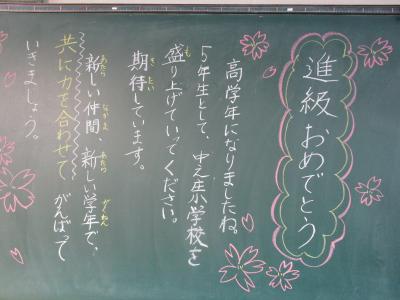 進級おめでとう
高学年になりましたね。
5年生として、中之庄小学校を
盛り上げていってください。
期待しています。
新しい仲間、新しい学年で、
共に力を合わせて がんばって
いきましょう。